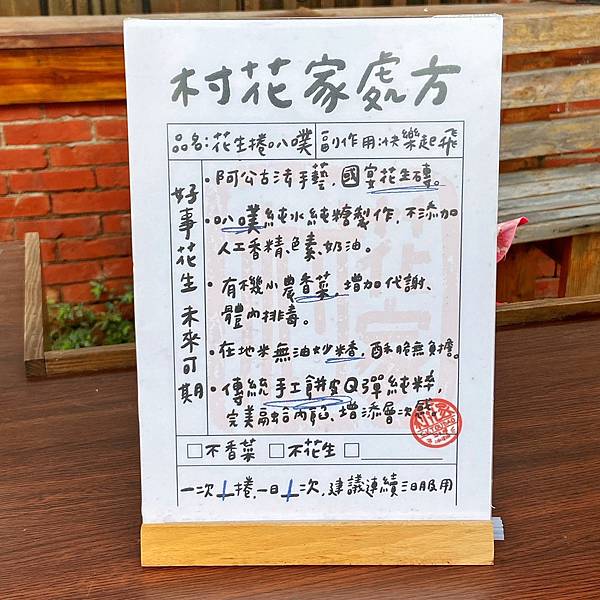 村花家處方
品名:花生捲叭噗 副作用:快樂起飛
好事花生 未來可期
•阿公古法手藝,國宴花生磚。
•叭噗純水純糖製作,不添加
人工香精、色素、奶油。
•有機小農香菜 增加代謝、
體內排毒。
•在地米無油炒米香,酥脆無負擔。
•傳統手工餅皮Q彈純粹,
完美融合內餡、增添層次感
□不香菜 □不花生 □
一次1捲,一日1次,建議連續三日服用